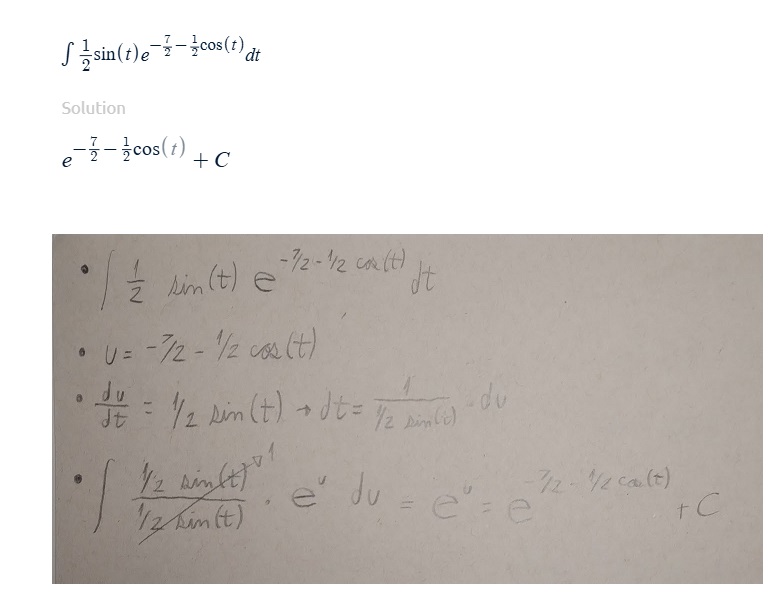 ∫ 1/2 sin(t) e^(-7/2 - 1/2 cos(t)) dt
Solution
e^(-7/2 - 1/2 cos(t)) + C
• ∫ 1/2 sin(t) e^(-7/2 - 1/2 cos(t)) dt
• u = -7/2 - 1/2 cos(t)
• du/dt = 1/2 sin(t) → dt = 1/(1/2 sin(t)) · du
• ∫ (1/2 sin(t))/(1/2 sin(t)) → 1 · e^u du = e^u = e^(-7/2 - 1/2 cos(t)) + C